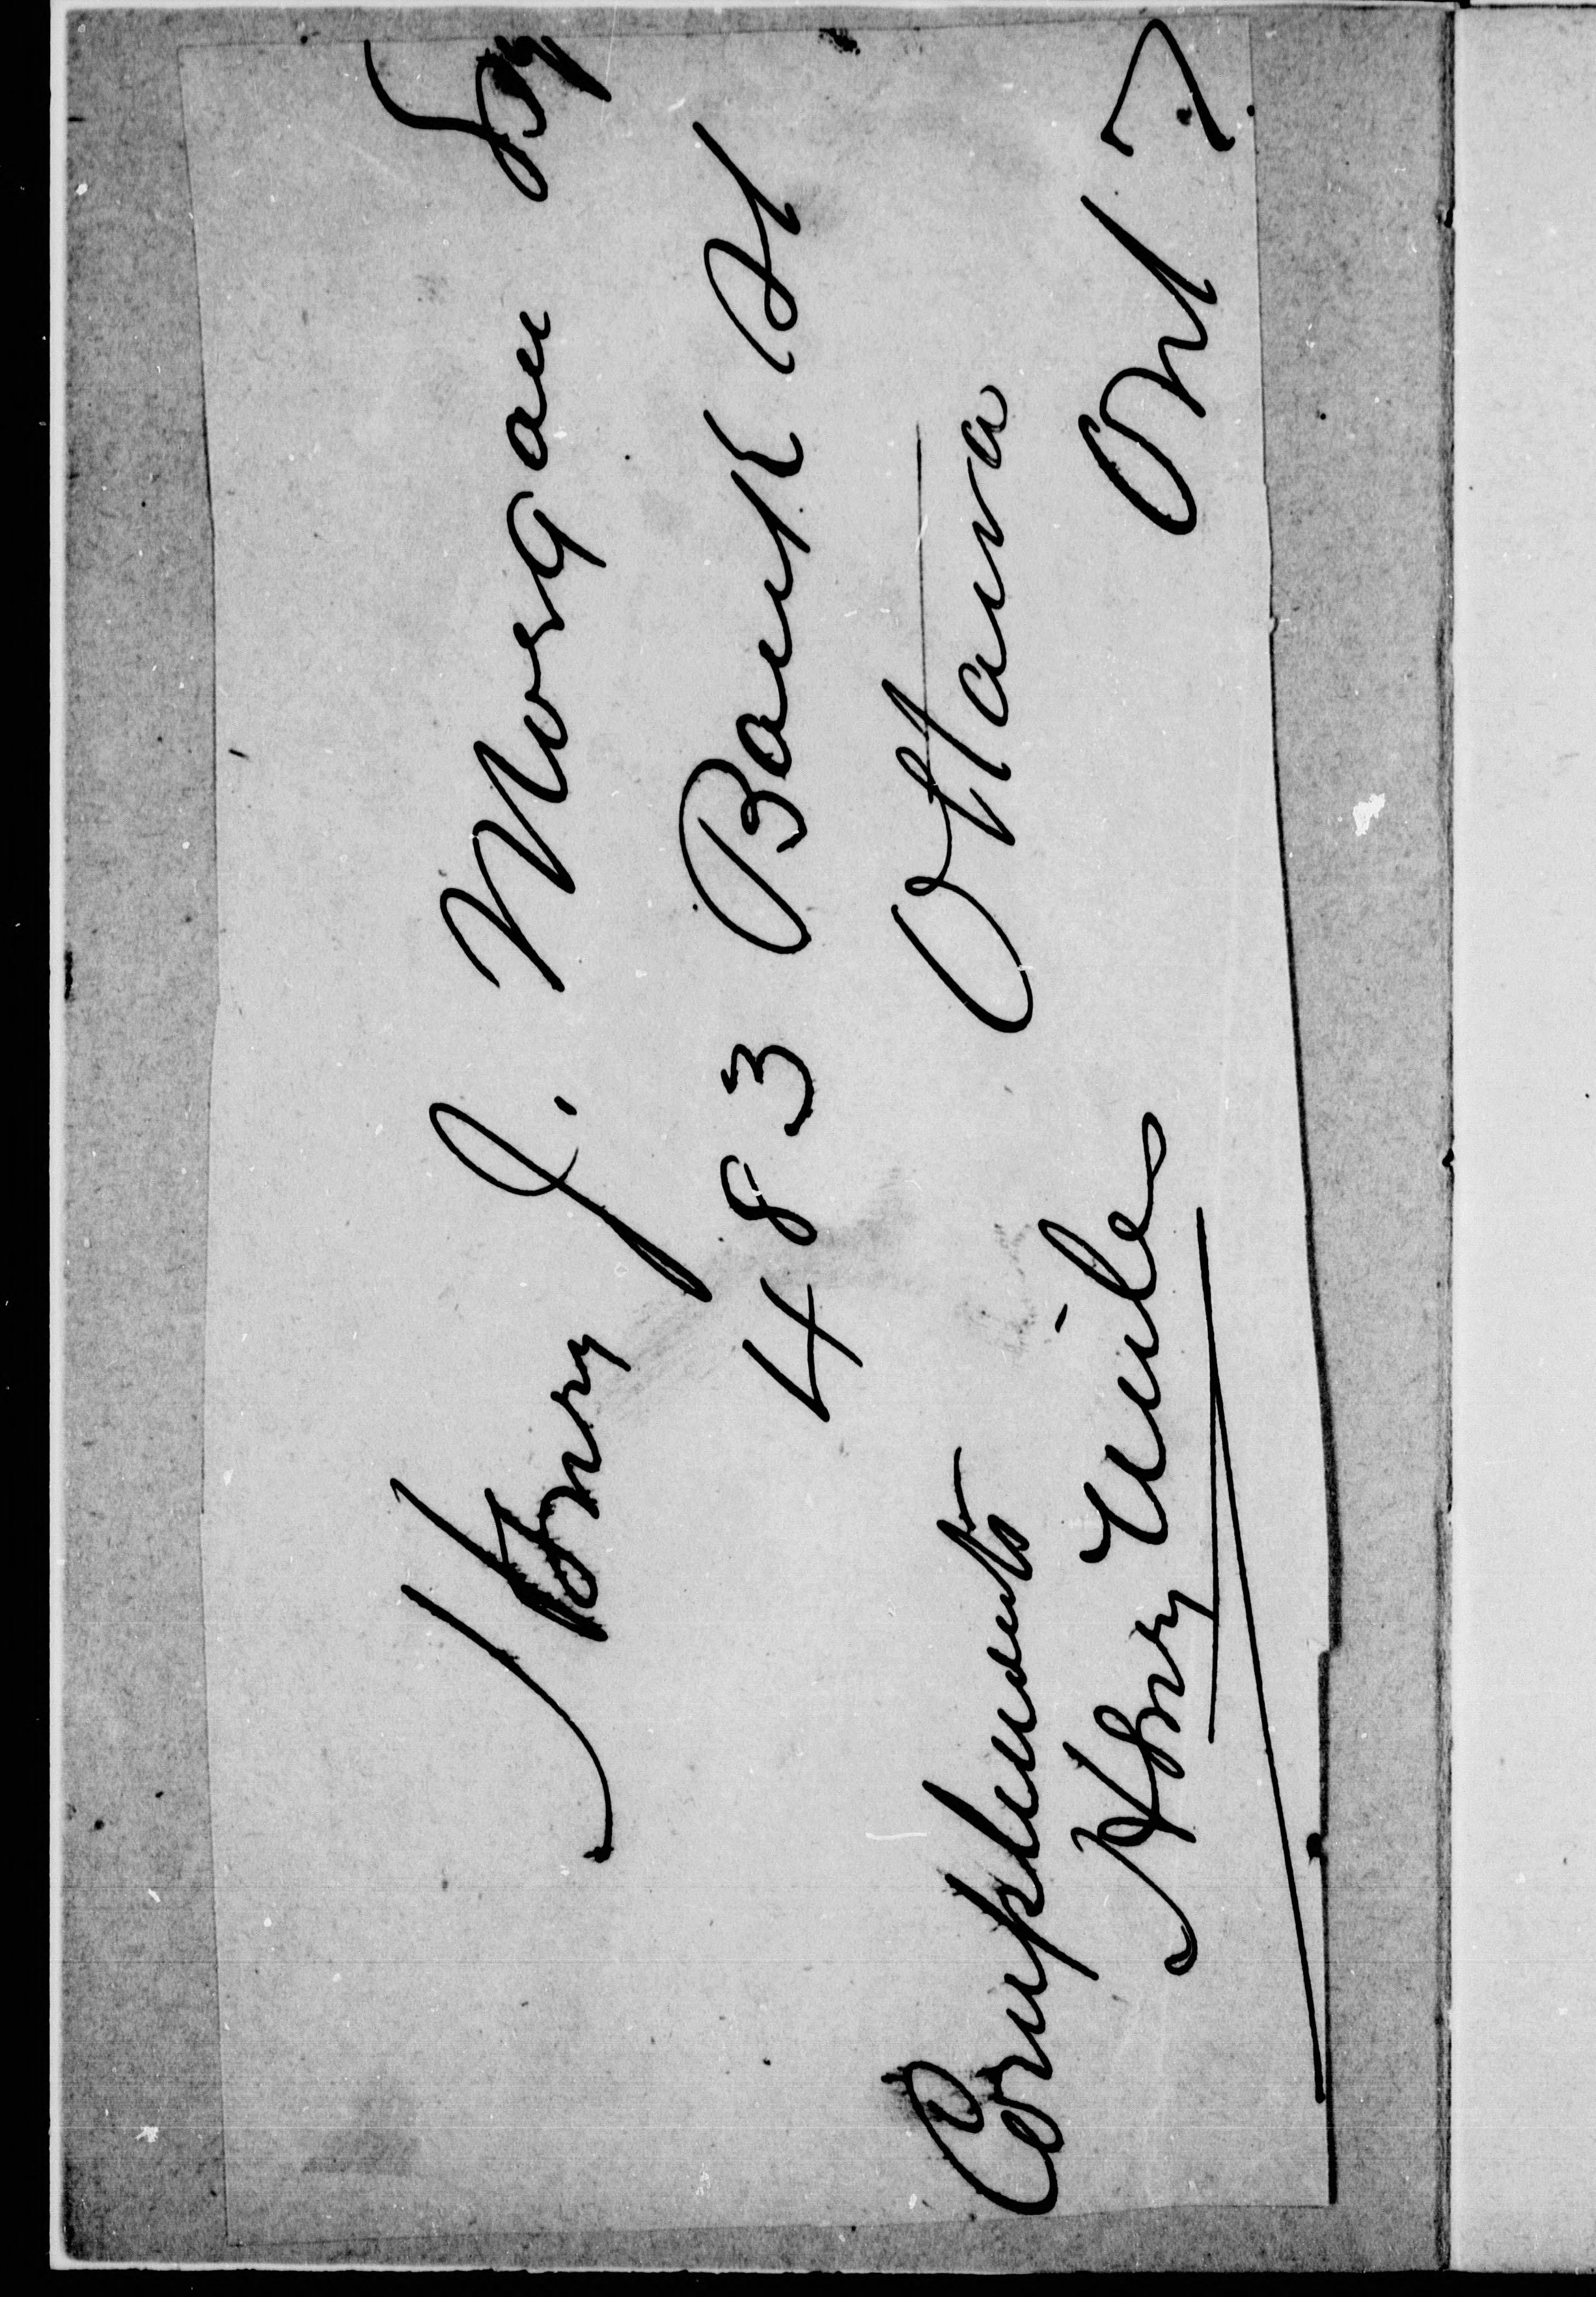 Henry J. Morgan Esq
483 Bank St
Ottawa
Ont
Compliments
Henry Miles